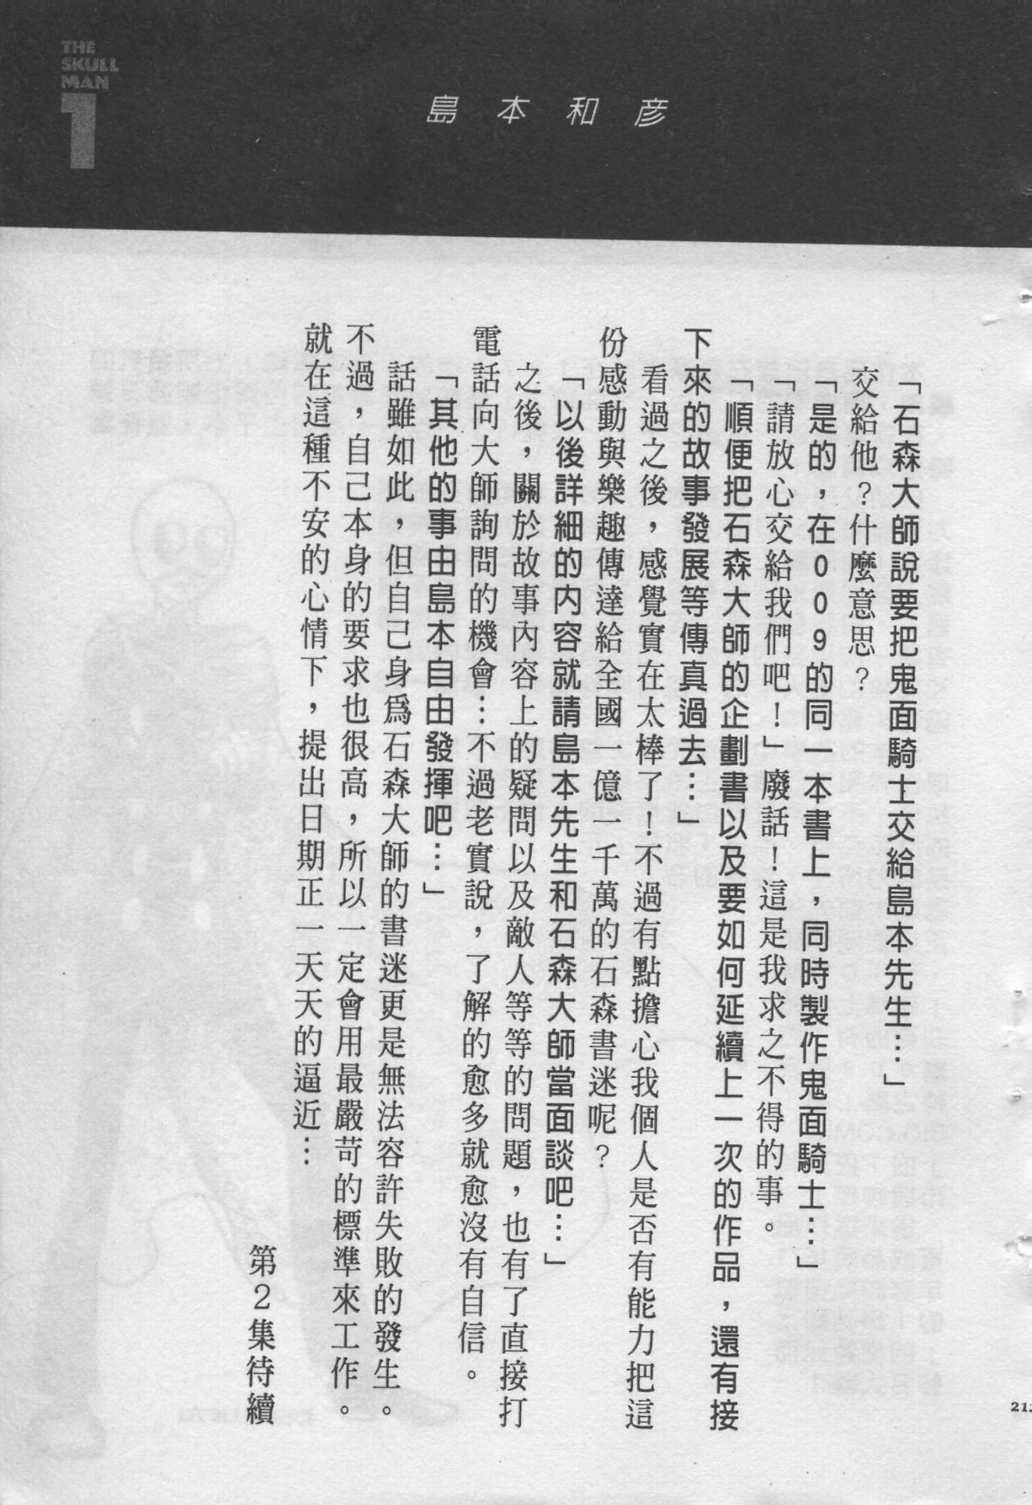 THE
SKULL
MAN
1
島本和彦
「石森大師說要把鬼面騎士交給島本先生…」
交給他？什麼意思？
「是的，在００９的同一本書上，同時製作鬼面騎士…」
「請放心交給我們吧！」廢話！這是我求之不得的事。
「順便把石森大師的企劃書以及要如何延續上一次的作品，還有接
下來的故事發展等傳真過去…」
看過之後，感覺實在太棒了！不過有點擔心我個人是否有能力把這
份感動與樂趣傳達給全國一億一千萬的石森書迷呢？
「以後詳細的内容就請島本先生和石森大師當面談吧…」
之後，關於故事內容上的疑問以及敵人等等的問題，也有了直接打
電話向大師詢問的機會…不過老實說，了解的愈多就愈沒有自信。
「其他的事由島本自由發揮吧…」
話雖如此，但自己身爲石森大師的書迷更是無法容許失敗的發生。
不過，自己本身的要求也很高，所以一定會用最嚴苛的標準來工作。
就在這種不安的心情下，提出日期正一天天的逼近…
第２集待續